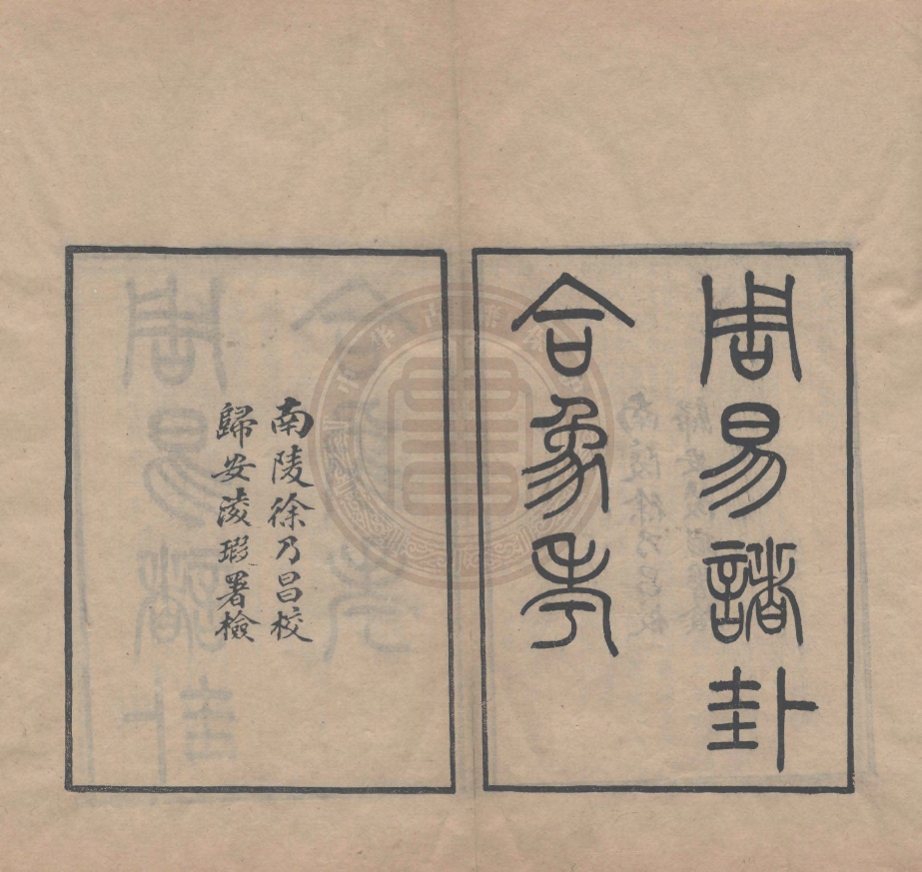 周易諸卦
合象考
南陵徐乃昌校
歸安淩瑕署檢